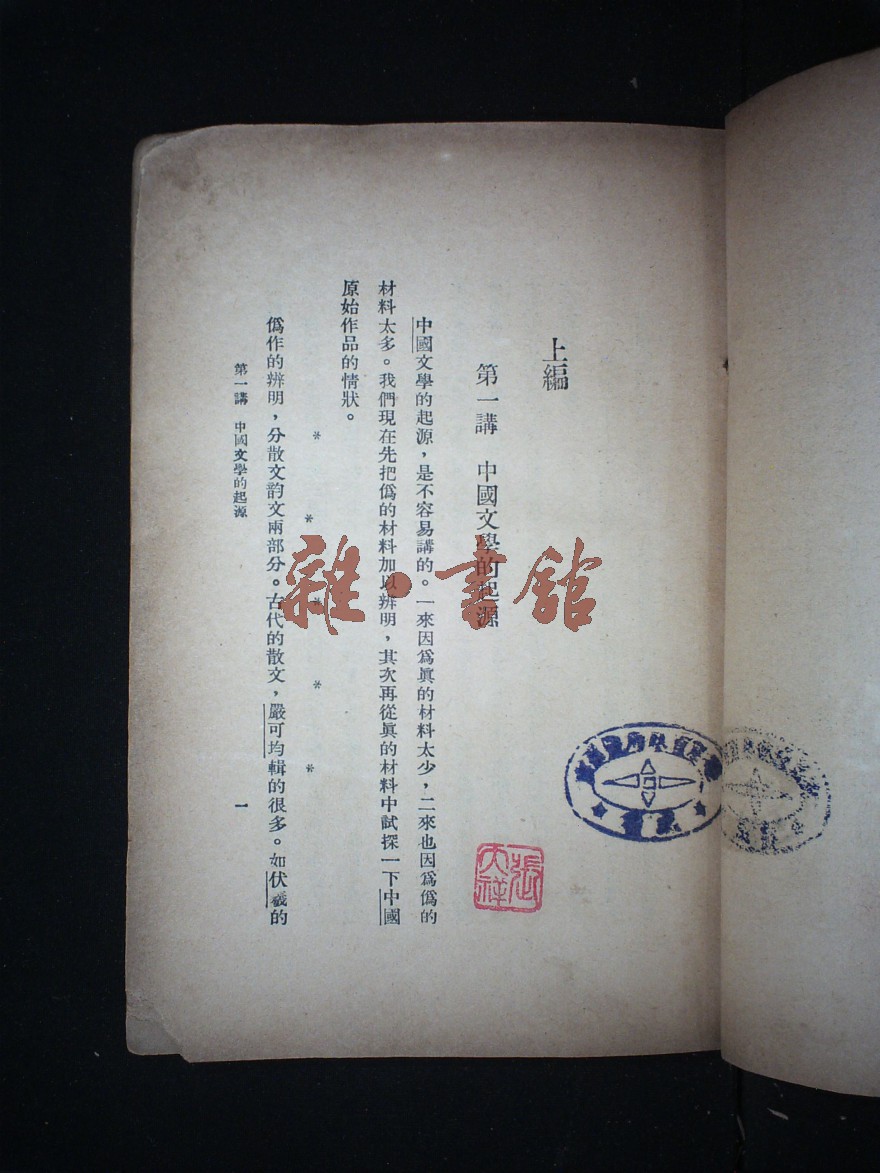 上編
第一講　中國文學的起源
中國文學的起源，是不容易講的。一來因爲眞的材料太少，二來也因爲僞的
材料太多。我們現在先把僞的材料加以辨明，其次再從眞的材料中試探一下中國
原始作品的情狀。
＊　＊　＊　＊　＊
僞作的辨明，分散文韵文兩部分。古代的散文，嚴可均輯的很多。如伏羲的
第一講　中國文學的起源
一
雜·書館
張天祥